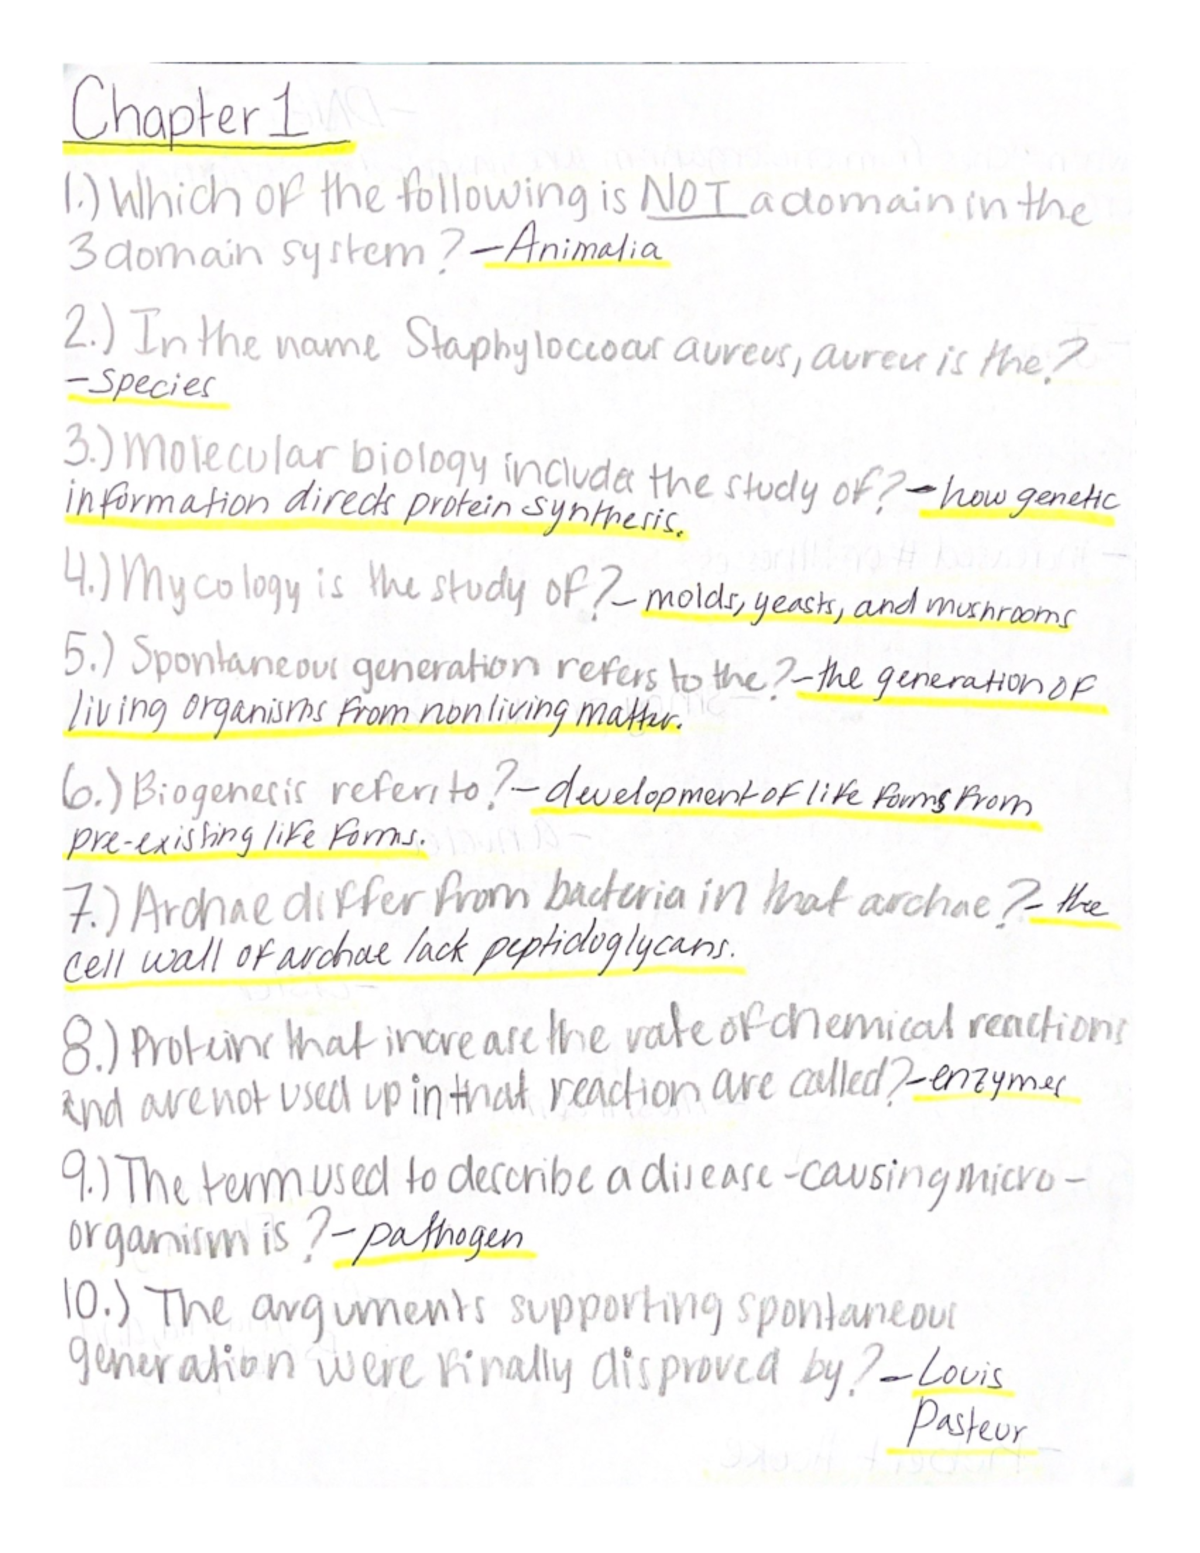 Chapter 1
1.) Which of the following is NOT a domain in the
3 domain system? - Animalia
2.) In the name Staphyloccocus aureus, aureu is the?
- Species
3.) Molecular biology includes the study of? - how genetic
information directs protein synthesis.
4.) Mycology is the study of? - molds, yeasts, and mushrooms
5.) Spontaneous generation refers to the? - the generation of
living organisms from nonliving matter.
6.) Biogenesis refers to? - development of life forms from
pre-existing life forms.
7.) Archae differ from bacteria in that archae? - the
cell wall of archae lack peptidoglycans.
8.) Proteins that increase the rate of chemical reactions
and are not used up in that reaction are called? - enzymes
9.) The term used to describe a disease-causing micro-
organism is? - pathogen
10.) The arguments supporting spontaneous
generation were finally disproved by? - Louis
Pasteur